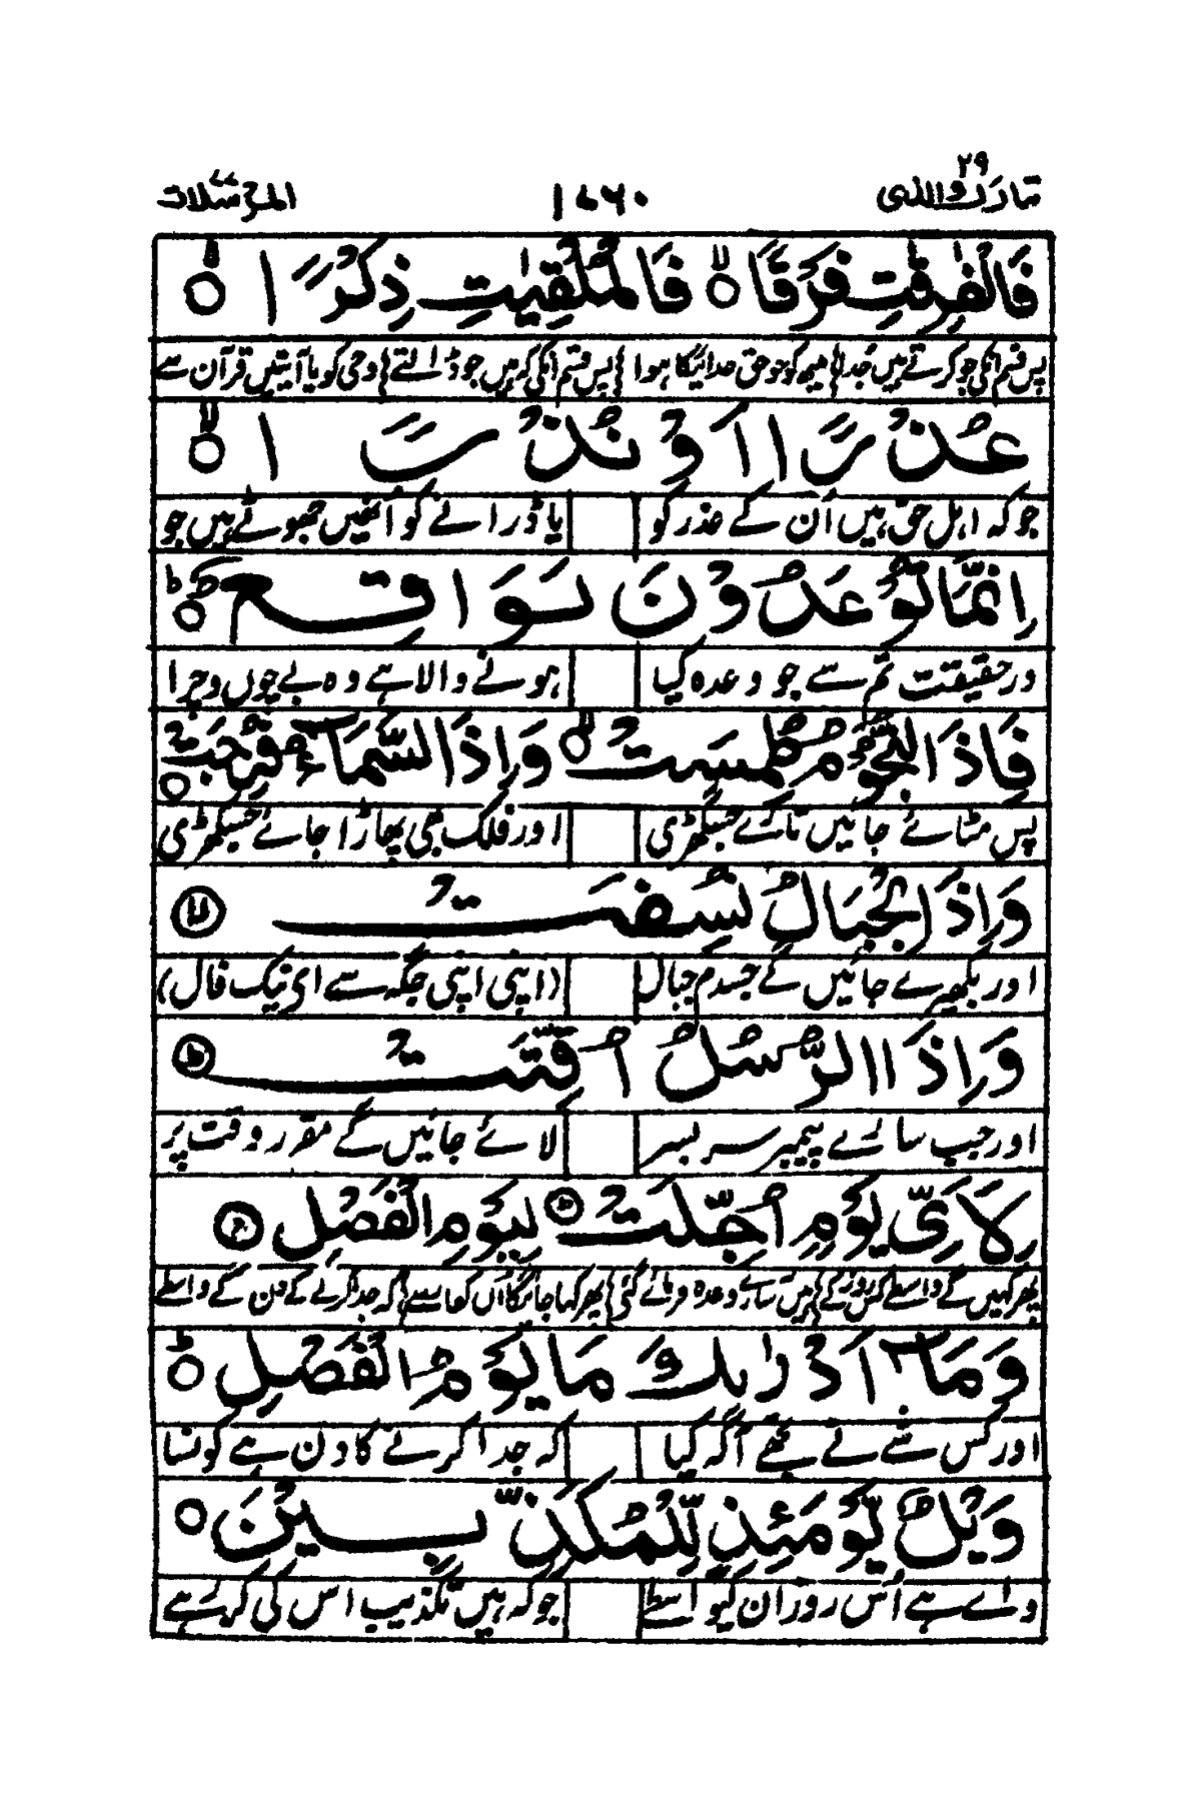 تبارک الذی ٢٩ ١٧٦٠ المرسلٰت ٧٧
فَالْفٰرِقٰتِ فَرْقًا ۙ فَالْمُلْقِيٰتِ ذِكْرًا ۙ
پس قسم انکی جو کرتے ہیں جدا میں کو جو حق جدا ہوا پس قسم انکی کہ ہیں جو ڈالتے وحی کو یا آیتیں قرآن سے
عُذْرًا اَوْ نُذْرًا ۙ
جو کہ اہل حق ہیں اُن کے عذر کو یا ڈرانے کو اُنھیں جھوٹے ہیں جو
اِنَّمَا تُوْعَدُوْنَ لَوَاقِعٌ ؕ
در حقیقت تم سے جو وعدہ کیا ہونے والا ہے وہ بے چوں وچرا
فَاِذَا النُّجُوْمُ طُمِسَتْ ۙ وَاِذَا السَّمَآءُ فُرِجَتْ ۙ
پس مٹائے جائیں تارے جس گھڑی اور فلک بھی پھاڑا جائے جس گھڑی
وَاِذَا الْجِبَالُ نُسِفَتْ ۙ
اور بکھیرے جائیں گے جس دم جبال (اپنی اپنی جگہ سے اے نیک فال)
وَاِذَا الرُّسُلُ اُقِّتَتْ ؕ
اور جب سارے پیمبر سر بسر لائے جائیں گے مقرر وقت پر
لِاَيِّ يَوْمٍ اُجِّلَتْ ؕ لِيَوْمِ الْفَصْلِ ۚ
پھر کہیں گے واسطے کس روز کے ہیں سارے وعدہ فرمائے گئے پھر کہا جائیگا اُس کہ جدا کرنے کے دن کے واسطے
وَمَآ اَدْرٰىكَ مَا يَوْمُ الْفَصْلِ ؕ
اور کس شے نے تجھے آگہ کیا کہ جدا کرنے کا دن ہے کونسا
وَيْلٌ يَّوْمَئِذٍ لِّلْمُكَذِّبِيْنَ ○
وائے ہے اُس روز ان کے واسطے جو کہ ہیں تکذیب اس کی کر رہے